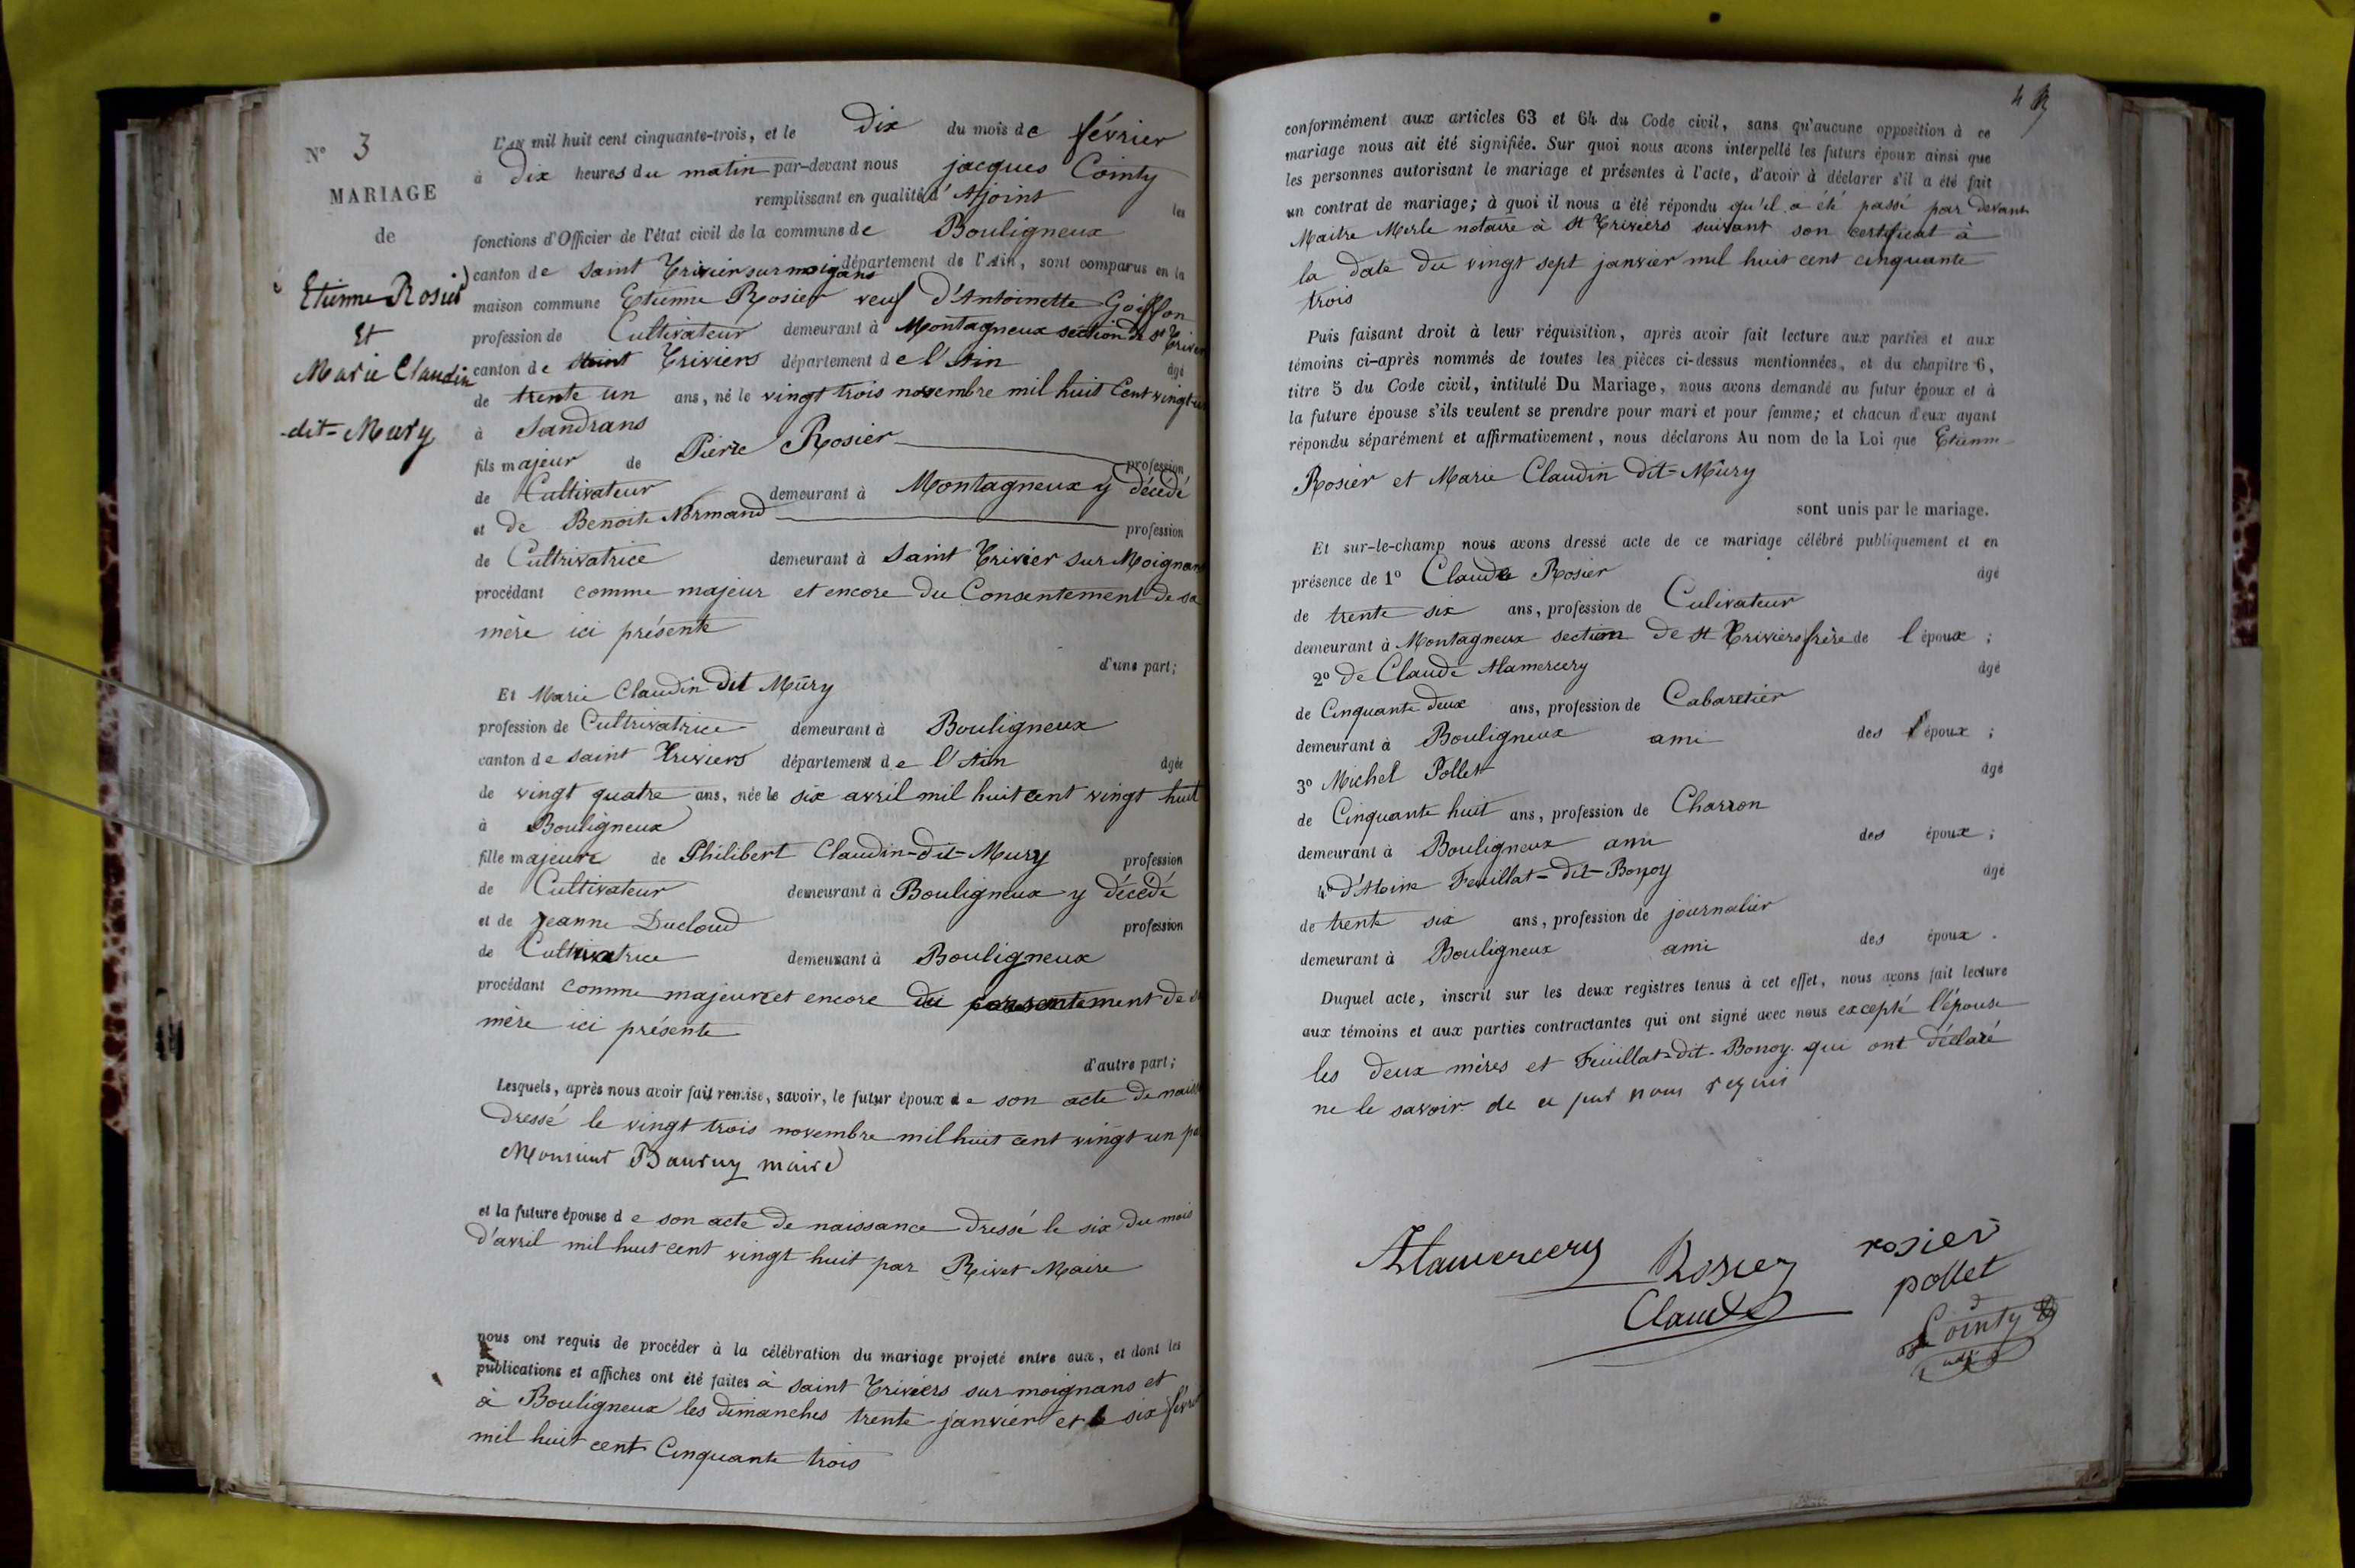 N° 3
MARIAGE
de
Etienne Rosier
Et
Marie Claudin
-dit-Mury
L'AN mil huit cent cinquante-trois, et le dix du mois de février
à dix heures du matin par-devant nous jacques Cointy
remplissant en qualité d'Ajoint les
fonctions d'Officier de l'état civil de la commune de Bouligneux
canton de Saint Trivier sur moignans département de l'Ain, sont comparus en la
maison commune Etienne Rosier veuf d'Antoinette Goiffon
profession de Cultivateur demeurant à Montagneux section de St Trivier
canton de Saint Triviers département de l'Ain âgé
de trente un ans, né le vingt trois novembre mil huit Cent vingt un
à Sandrans
fils majeur de Pierre Rosier profession
de Cultivateur demeurant à Montagneux y décédé
et de Benoite Normand profession
de Cultrivatrice demeurant à Saint Trivier sur Moignans
procédant comme majeur et encore du Consentement de sa
mère ici présente
d'une part;
Et Marie Claudin dit Mûry
profession de Cultrivatrice demeurant à Bouligneux
canton de Saint Triviers département de l'Ain âgée
de vingt quatre ans, née le six avril mil huit cent vingt huit
à Bouligneux
fille majeure de Philibert Claudin-dit-Mury profession
de Cultivateur demeurant à Bouligneux y décédé
et de jeanne Ducloud profession
de Cultivatrice demeurant à Bouligneux
procédant comme majeure et encore du consentement de sa
mère ici présente
d'autre part;
Lesquels, après nous avoir fait remise, savoir, le futur époux de son acte de naiss
dressé le vingt trois novembre mil huit cent vingt un pa
Monsieur Bauruy maire
et la future épouse de son acte de naissance dressé le six du mois
d'avril mil huit cent vingt huit par Rivet Maire
nous ont requis de procéder à la célébration du mariage projeté entre eux, et dont les
publications et affiches ont été faites à saint Triviers sur moignans et
à Bouligneux les dimanches trente janvier et le six févri
mil huit cent Cinquante trois
conformément aux articles 63 et 64 du Code civil, sans qu'aucune opposition à ce
mariage nous ait été signifiée. Sur quoi nous avons interpellé les futurs époux ainsi que
les personnes autorisant le mariage et présentes à l'acte, d'avoir à déclarer s'il a été fait
un contrat de mariage; à quoi il nous a été répondu qu'il a été passé par devant
Maitre Merle notaire à St Triviers suivant son certificat à
la date du vingt sept janvier mil huit cent cinquante
trois
Puis faisant droit à leur réquisition, après avoir fait lecture aux parties et aux
témoins ci-après nommés de toutes les pièces ci-dessus mentionnées, et du chapitre 6,
titre 5 du Code civil, intitulé Du Mariage, nous avons demandé au futur époux et à
la future épouse s'ils veulent se prendre pour mari et pour femme; et chacun d'eux ayant
répondu séparément et affirmativement, nous déclarons Au nom de la Loi que Etienne
Rosier et Marie Claudin dit-Mûry
sont unis par le mariage.
Et sur-le-champ nous avons dressé acte de ce mariage célébré publiquement et en
présence de 1° Claude Rosier âgé
de trente six ans, profession de Culivateur
demeurant à Montagneux section de St Triviers frère de l'époux;
2° de Claude Alamercery âgé
de Cinquante deux ans, profession de Cabaretier
demeurant à Bouligneux ami des époux;
3° Michel Pollet âgé
de Cinquante huit ans, profession de Charron
demeurant à Bouligneux ami des époux;
4° Feuillat-dit-Bonoy âgé
de trente six ans, profession de journalier
demeurant à Bouligneux ami des époux.
Duquel acte, inscrit sur les deux registres tenus à cet effet, nous avons fait lecture
aux témoins et aux parties contractantes qui ont signé avec nous excepté l'épouse
les deux mères et Feuillat-dit-Bonoy qui ont déclaré
ne le savoir de ce fait nous requis
Alamercery Rosier rosier
Claude pollet
Cointy
adj